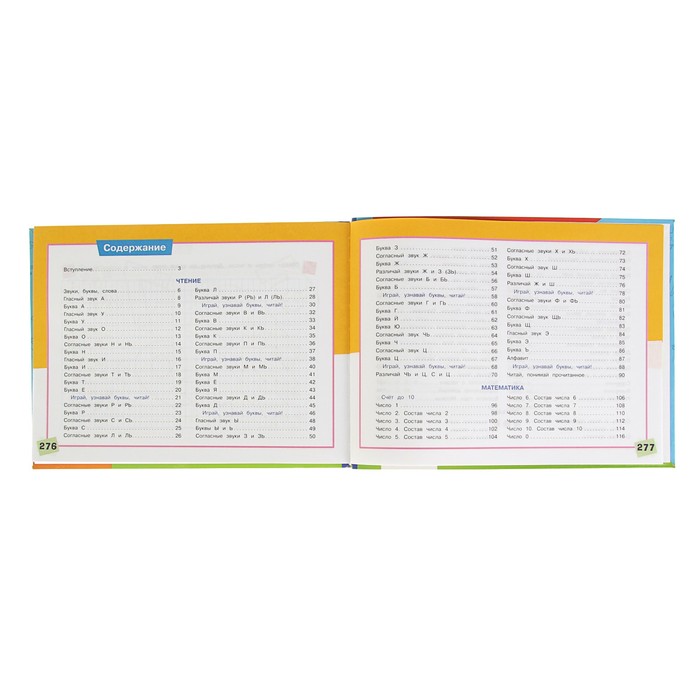 Содержание
Вступление 3
ЧТЕНИЕ
Звуки, буквы, слова 6
Гласный звук А 8
Буква А 9
Гласный звук У 10
Буква У 11
Гласный звук О 12
Буква О 13
Согласные звуки Н и Нь 14
Буква Н 15
Гласный звук И 16
Буква И 17
Согласные звуки Т и Ть 18
Буква Т 19
Буква Е 20
Играй, узнавай буквы, читай! 21
Согласные звуки Р и Рь 22
Буква Р 23
Согласные звуки С и Сь 24
Буква С 25
Согласные звуки Л и Ль 26
Буква Л 27
Различай звуки Р (Рь) и Л (Ль) 28
Играй, узнавай буквы, читай! 30
Согласные звуки В и Вь 32
Буква В 33
Согласные звуки К и Кь 34
Буква К 35
Согласные звуки П и Пь 36
Буква П 37
Играй, узнавай буквы, читай! 38
Согласные звуки М и Мь 40
Буква М 41
Буква Ё 42
Буква Я 43
Согласные звуки Д и Дь 44
Буква Д 45
Играй, узнавай буквы, читай! 46
Гласный звук Ы 48
Буквы Ы и Ь 49
Согласные звуки З и Зь 50
276
Буква З 51
Согласный звук Ж 52
Буква Ж 53
Различай звуки Ж и З (Зь) 54
Согласные звуки Б и Бь 56
Буква Б 57
Играй, узнавай буквы, читай! 58
Согласные звуки Г и Гь 60
Буква Г 61
Буква Й 62
Буква Ю 63
Согласный звук Чь 64
Буква Ч 65
Согласный звук Ц 66
Буква Ц 67
Играй, узнавай буквы, читай! 68
Различай звуки Чь и Ц, С и Ц 70
Согласные звуки Х и Хь 72
Буква Х 73
Согласный звук Ш 74
Буква Ш 75
Различай звуки Ж и Ш 76
Играй, узнавай буквы, читай! 78
Согласные звуки Ф и Фь 80
Буква Ф 81
Согласный звук Щь 82
Буква Щ 83
Гласный звук Э 84
Буква Э 85
Буква Ъ 86
Алфавит 87
Играй, узнавай буквы, читай! 88
Читай, понимая прочитанное 90
МАТЕМАТИКА
Счёт до 10
Число 1 96
Число 2. Состав числа 2 98
Число 3. Состав числа 3 100
Число 4. Состав числа 4 102
Число 5. Состав числа 5 104
Число 6. Состав числа 6 106
Число 7. Состав числа 7 108
Число 8. Состав числа 8 110
Число 9. Состав числа 9 112
Число 10. Состав числа 10 114
Число 0 116
277